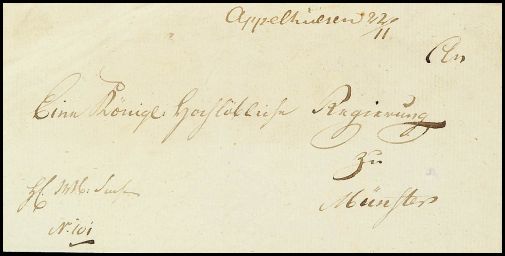 Appelhülsen 22/11
An
Eine Königl. Hochlöbliche Regierung
zu
Münster
N. 101